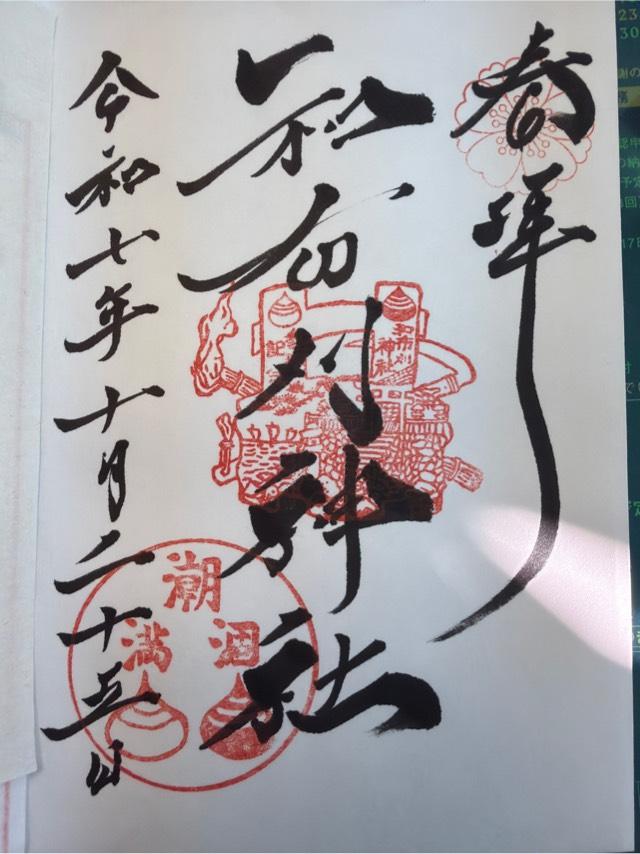 奉拝
和布刈神社
令和七年十月二十五日
和布刈
神社
記
潮
満 涸
23
30